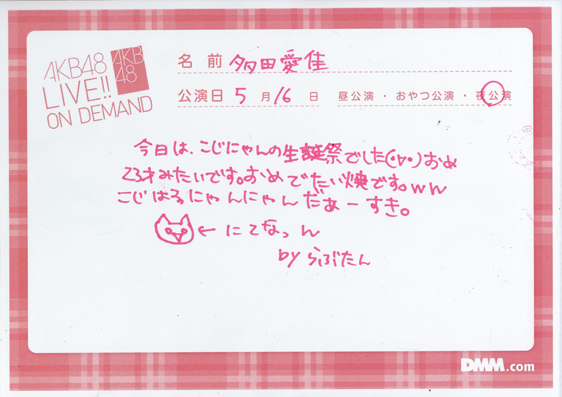 AKB48
LIVE!!
ON DEMAND
AKB
48
名 前 多田愛佳
公演日 5 月 16 日 昼公演・おやつ公演・夜公演
今日は、こじにゃんの生誕祭でした(・▽・)おめ
23才みたいです。おめでたい焼です。ww
こじはるにゃんにゃんだぁーすき。
← にてなっん
by らぶたん
DMM.com